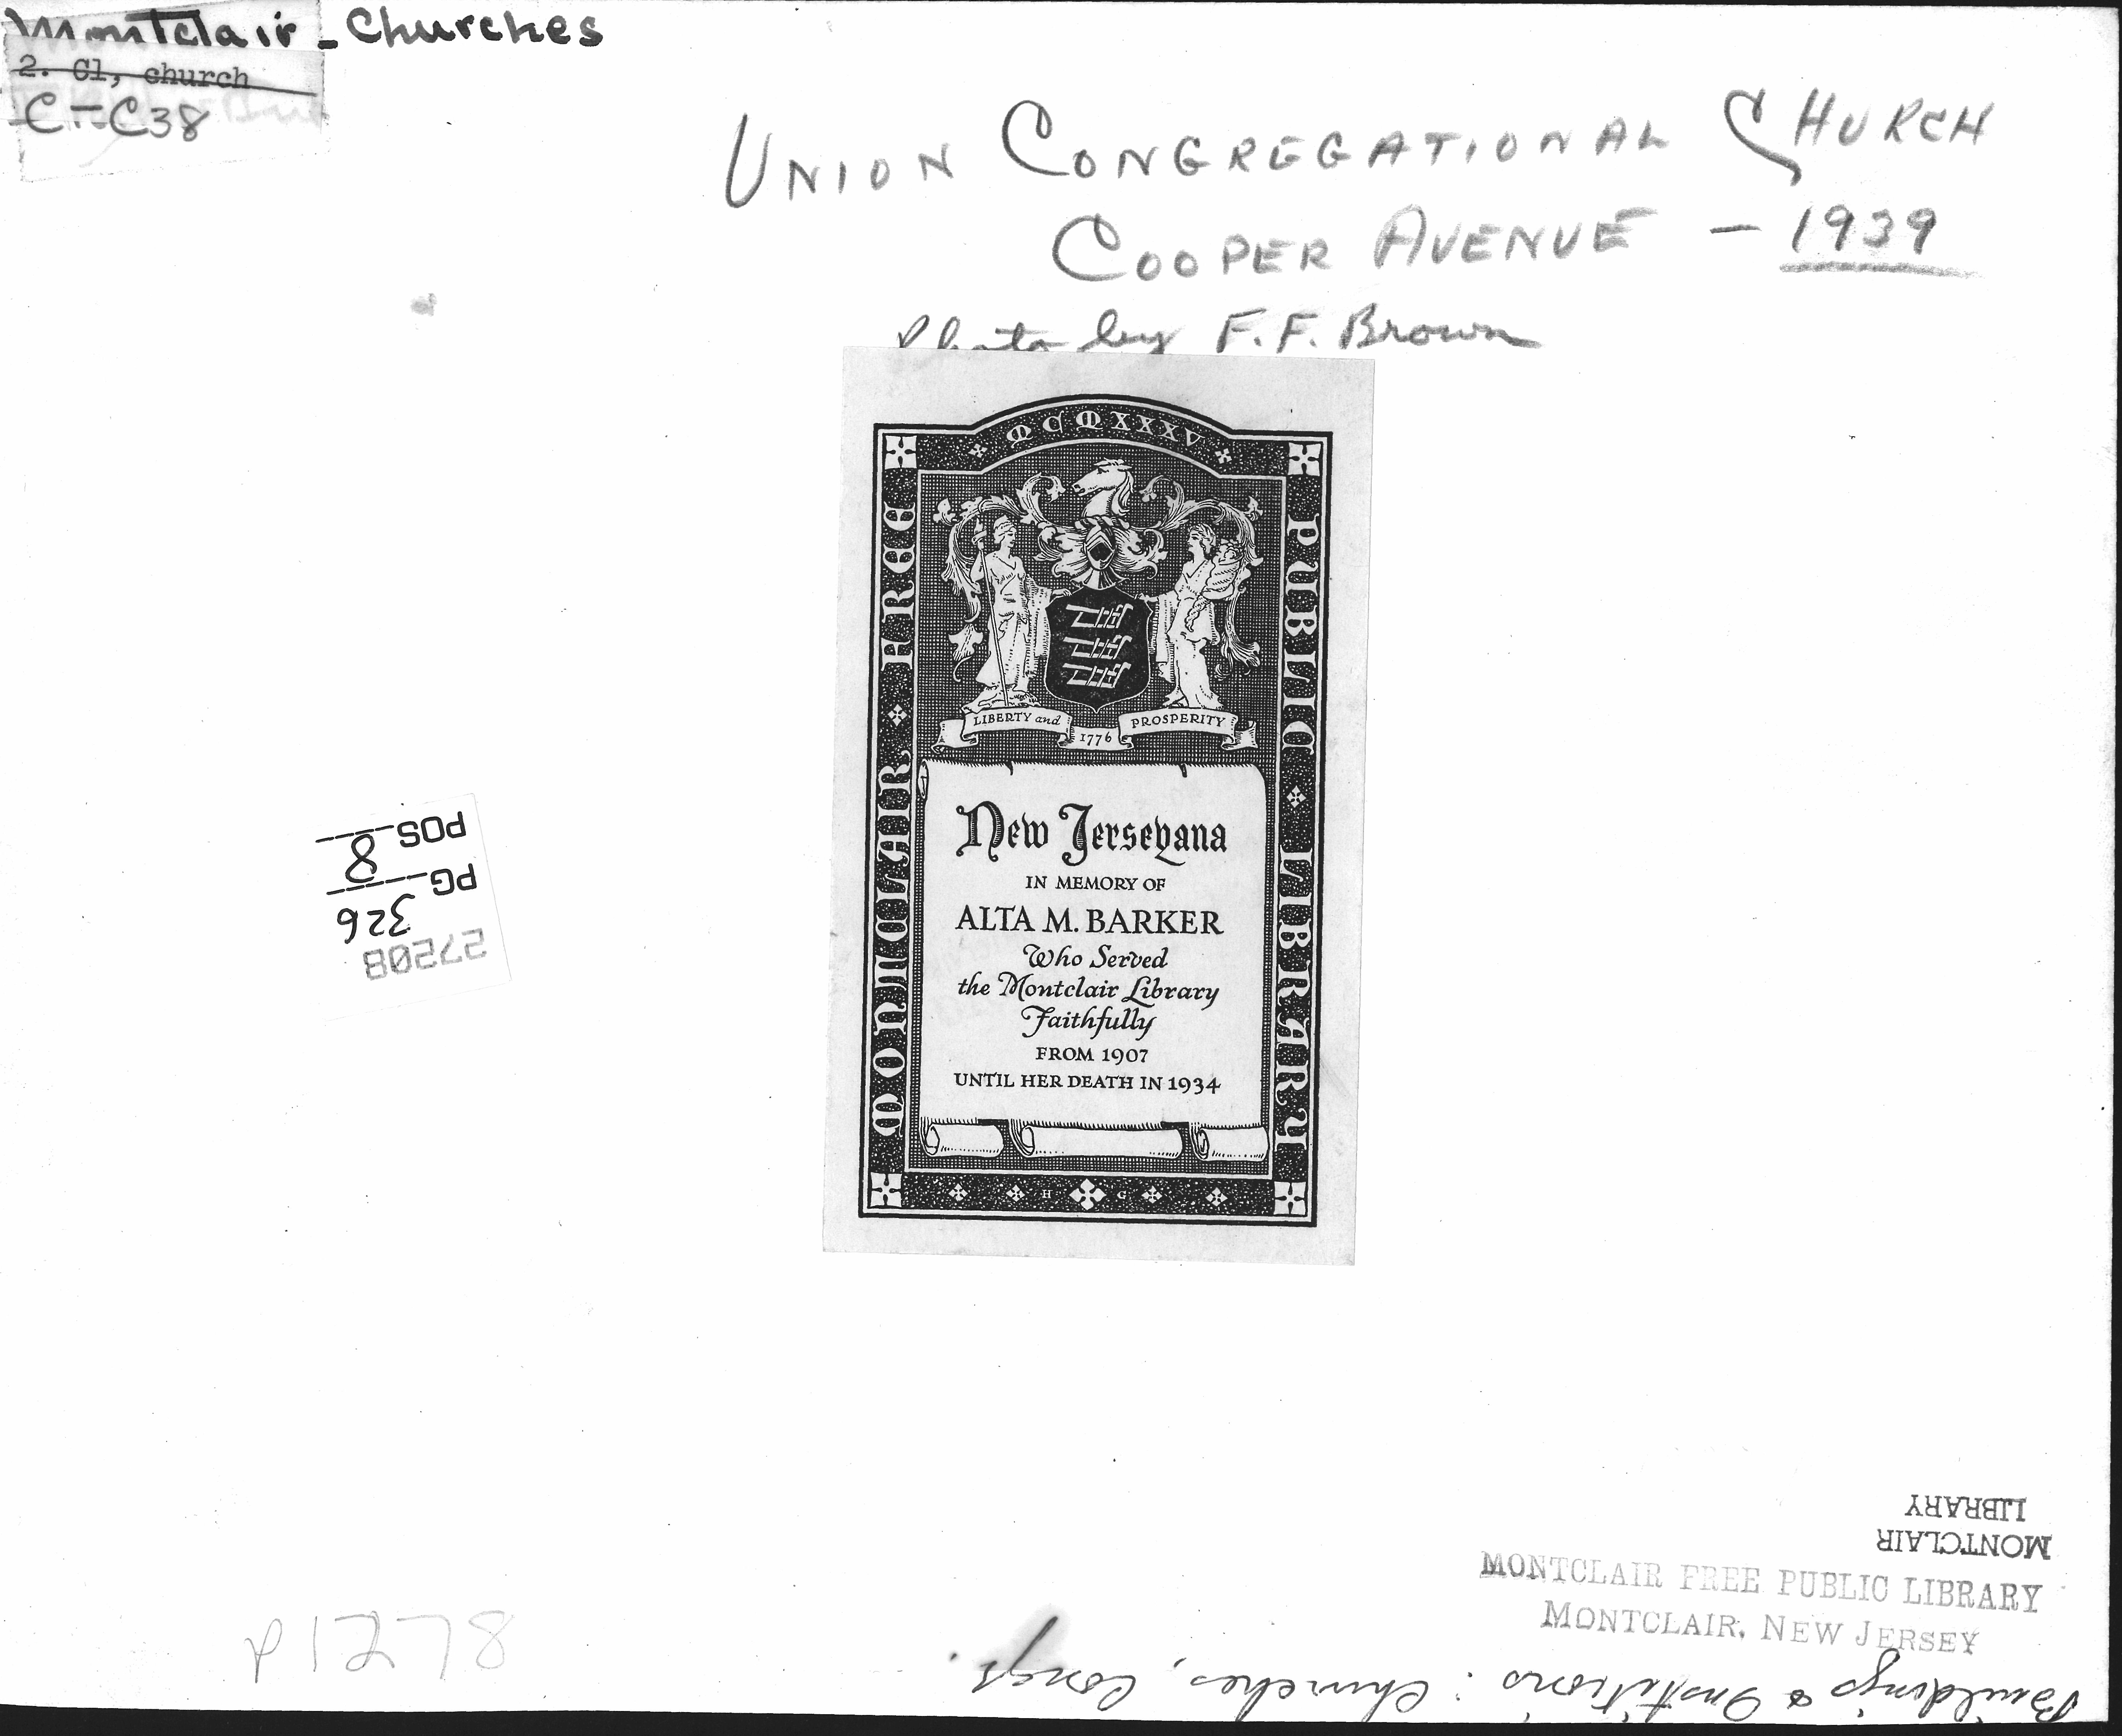 Montclair - Churches
2. Cl, church
C-C38
UNION CONGREGATIONAL CHURCH
COOPER AVENUE - 1939
Photo by F. F. Brown
MCMXXXV
MONTCLAIR FREE
PUBLIC LIBRARY
LIBERTY and PROSPERITY
1776
New Jerseyana
IN MEMORY OF
ALTA M. BARKER
Who Served
the Montclair Library
Faithfully
FROM 1907
UNTIL HER DEATH IN 1934
H G
27208
PG 326
POS 8
MONTCLAIR
LIBRARY
MONTCLAIR FREE PUBLIC LIBRARY
MONTCLAIR, NEW JERSEY
P1278
Buildings & Institutions: Churches, Congs.